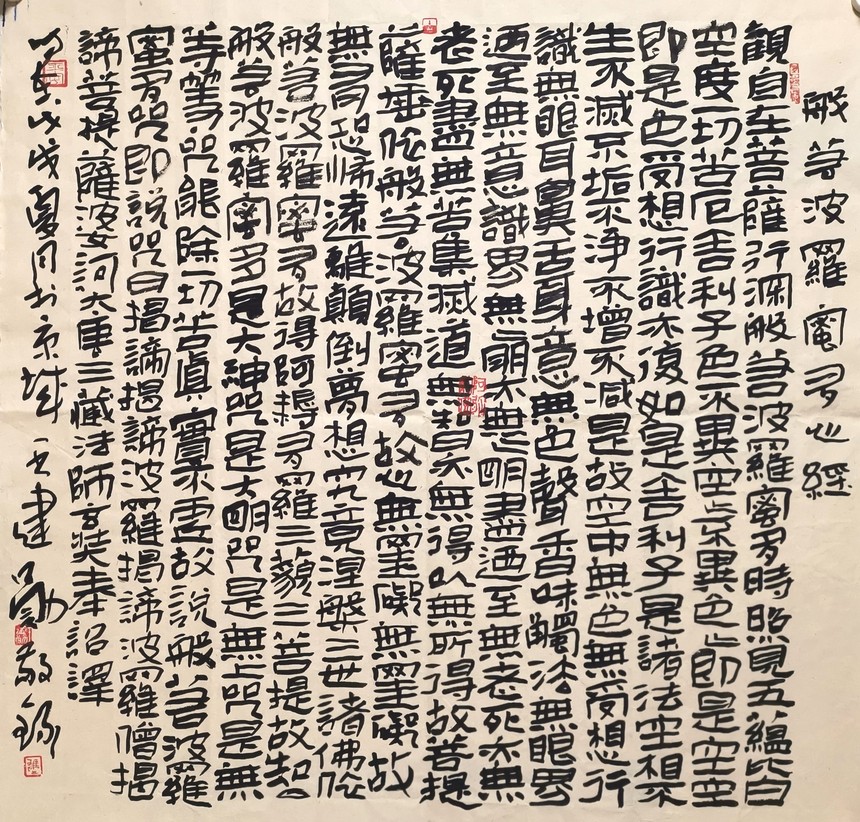 般若波羅蜜多心經
觀自在菩薩行深般若波羅蜜多時照見五蘊皆
空度一切苦厄舍利子色不異空〻不異色〻即是空空
即是色受想行識亦復如是舍利子是諸法空相不
生不滅不垢不淨不增不減是故空中無色無受想行
識無眼耳鼻舌身意無色聲香味觸法無眼界
迺至無意識界無〻明亦無〻明盡迺至無老死亦無
老死盡無苦集滅道無智亦無得以無所得故菩提
薩埵依般若波羅蜜多故心無罣礙無罣礙故
無有恐怖遠離顛倒夢想究竟涅槃三世諸佛依
般若波羅蜜多故得阿耨多羅三藐三菩提故知
般若波羅蜜多是大神咒是大明咒是無上咒是無
等等咒能除一切苦真實不虛故說般若波羅
蜜多咒即說咒曰揭諦揭諦波羅揭諦波羅僧揭
諦菩提薩婆訶大唐三藏法師玄奘奉詔譯
時在戊戌夏月於京城王建勛敬錄